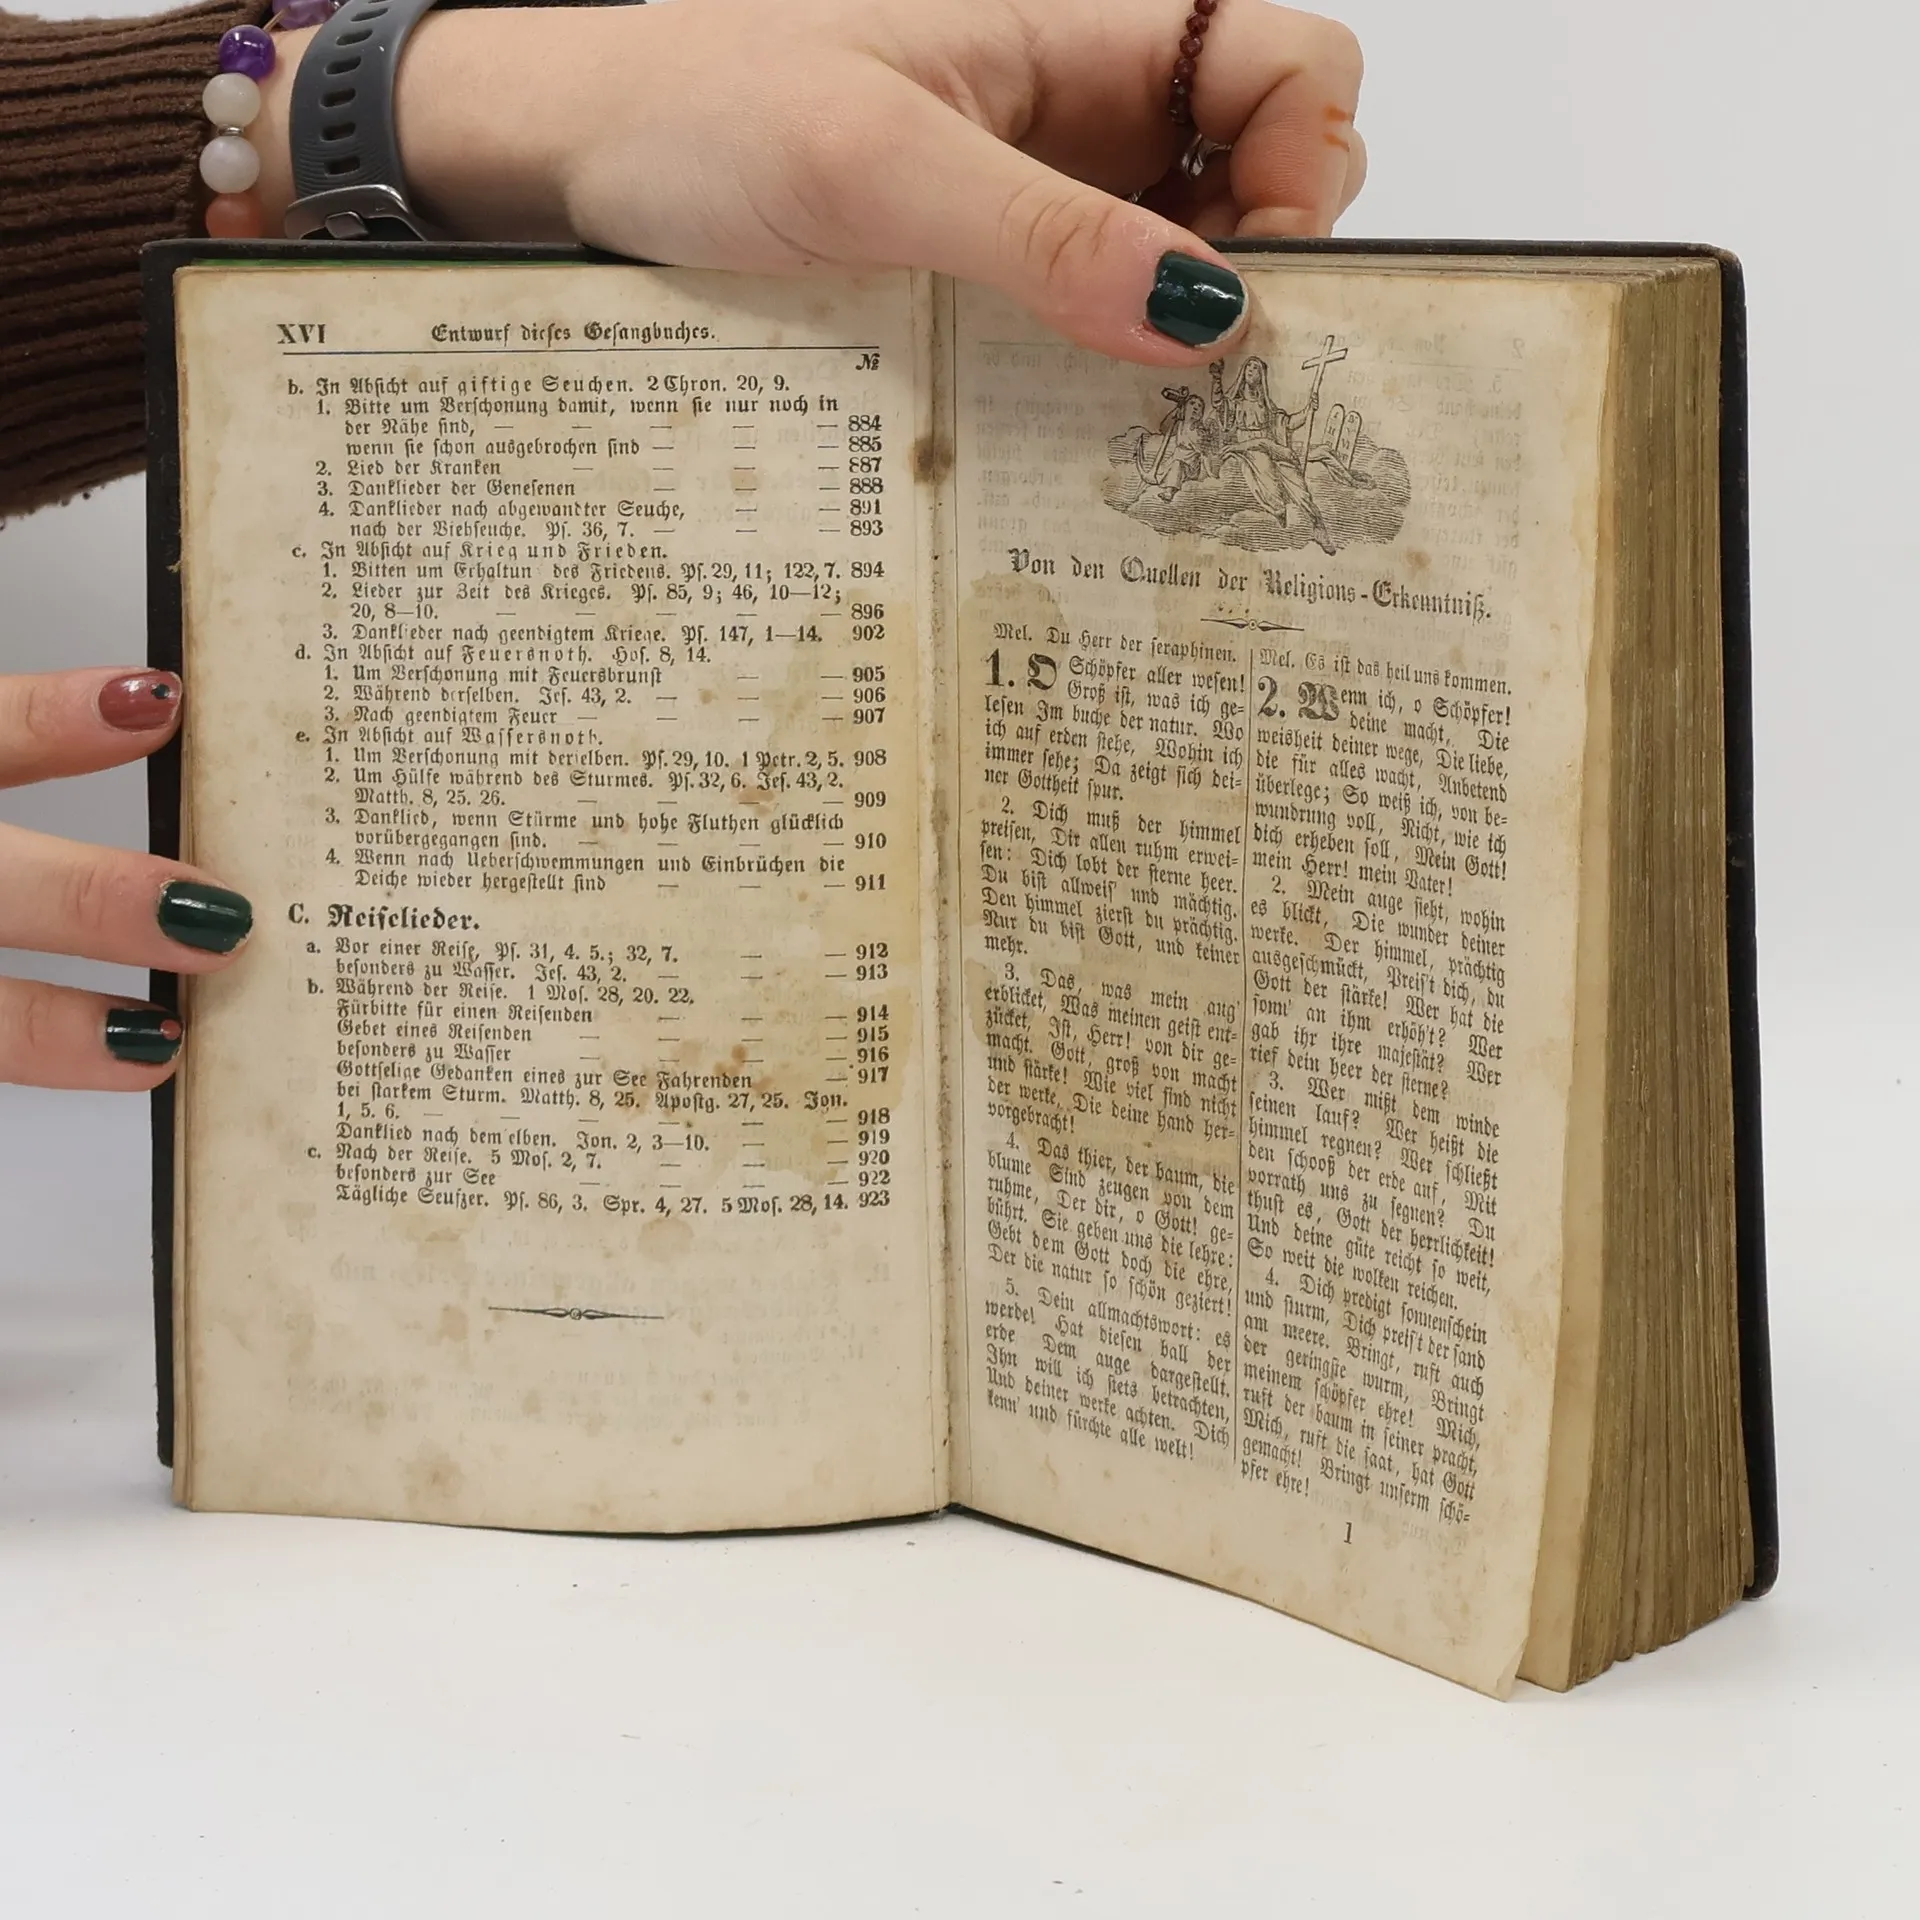 XVI Entwurf dieſes Geſangbuches.
№
b. In Abſicht auf giftige Seuchen. 2 Chron. 20, 9.
1. Bitte um Verſchonung damit, wenn ſie nur noch in
der Nähe ſind, — — — — — 884
wenn ſie ſchon ausgebrochen ſind — — — 885
2. Lied der Kranken — — — — 887
3. Danklieder der Geneſenen — — — 888
4. Danklieder nach abgewandter Seuche, — — 891
nach der Viehſeuche. Pſ. 36, 7. — — — 893
c. In Abſicht auf Krieg und Frieden.
1. Bitten um Erhaltun des Friedens. Pſ. 29, 11; 122, 7. 894
2. Lieder zur Zeit des Krieges. Pſ. 85, 9; 46, 10—12;
20, 8—10. — — — — — 896
3. Danklieder nach geendigtem Kriege. Pſ. 147, 1—14. 902
d. In Abſicht auf Feuersnoth. Hoſ. 8, 14.
1. Um Verſchonung mit Feuersbrunſt — — 905
2. Während derſelben. Jeſ. 43, 2. — — — 906
3. Nach geendigtem Feuer — — — — 907
e. In Abſicht auf Waſſersnoth.
1. Um Verſchonung mit derſelben. Pſ. 29, 10. 1 Petr. 2, 5. 908
2. Um Hülfe während des Sturmes. Pſ. 32, 6. Jeſ. 43, 2.
Matth. 8, 25. 26. — — — — 909
3. Danklied, wenn Stürme und hohe Fluthen glücklich
vorübergegangen ſind. — — — — 910
4. Wenn nach Ueberſchwemmungen und Einbrüchen die
Deiche wieder hergeſtellt ſind — — — 911
C. Reiſelieder.
a. Vor einer Reiſe, Pſ. 31, 4. 5.; 32, 7. — — 912
beſonders zu Waſſer. Jeſ. 43, 2. — — — 913
b. Während der Reiſe. 1 Moſ. 28, 20. 22.
Fürbitte für einen Reiſenden — — — 914
Gebet eines Reiſenden — — — — 915
beſonders zu Waſſer — — — — 916
Gottſelige Gedanken eines zur See Fahrenden — 917
bei ſtarkem Sturm. Matth. 8, 25. Apoſtg. 27, 25. Jon.
1, 5. 6. — — — — — 918
Danklied nach dem elben. Jon. 2, 3—10. — — 919
c. Nach der Reiſe. 5 Moſ. 2, 7. — — — 920
beſonders zur See — — — — 922
Tägliche Seufzer. Pſ. 86, 3. Spr. 4, 27. 5 Moſ. 28, 14. 923
Von den Quellen der Religions-Erkenntniß.
Mel. Du Herr der ſeraphinen.
1. O Schöpfer aller weſen!
Groß iſt, was ich ge-
leſen Im buche der natur. Wo
ich auf erden ſtehe, Wohin ich
immer ſehe; Da zeigt ſich dei-
ner Gottheit ſpur.
2. Dich muß der himmel
preiſen, Dir allen ruhm erwei-
ſen: Dich lobt der ſterne heer.
Du biſt allweiſ' und mächtig.
Den himmel zierſt du prächtig.
Nur du biſt Gott, und keiner
mehr.
3. Das, was mein aug'
erblicket, Was meinen geiſt ent-
zücket, Iſt, Herr! von dir ge-
macht. Gott, groß von macht
und ſtärke! Wie viel ſind nicht
der werke, Die deine hand her-
vorgebracht!
4. Das thier, der baum, die
blume Sind zeugen von dem
ruhme, Der dir, o Gott! ge-
bührt. Sie geben uns die lehre:
Gebt dem Gott doch die ehre,
Der die natur ſo ſchön geziert!
5. Dein allmachtswort: es
werde! Hat dieſen ball der
erde Dem auge dargeſtellt.
Ihn will ich ſtets betrachten,
Und deiner werke achten. Dich
kenn' und fürchte alle welt!
Mel. Es iſt das heil uns kommen.
2. Wenn ich, o Schöpfer!
deine macht, Die
weisheit deiner wege, Die liebe,
die für alles wacht, Anbetend
überlege; So weiß ich, von be-
wundrung voll, Nicht, wie ich
dich erheben ſoll, Mein Gott!
mein Herr! mein Vater!
2. Mein auge ſieht, wohin
es blickt, Die wunder deiner
werke. Der himmel, prächtig
ausgeſchmückt, Preiſ't dich, du
Gott der ſtärke! Wer hat die
ſonn' an ihm erhöh't? Wer
gab ihr ihre majeſtät? Wer
rief dein heer der ſterne?
3. Wer mißt dem winde
ſeinen lauf? Wer heißt die
himmel regnen? Wer ſchließt
den ſchooß der erde auf, Mit
vorrath uns zu ſegnen? Du
thuſt es, Gott der herrlichkeit!
Und deine güte reicht ſo weit,
So weit die wolken reichen.
4. Dich predigt ſonnenſchein
und ſturm, Dich preiſ't der ſand
am meere. Bringt, ruft auch
der geringſte wurm, Bringt
meinem ſchöpfer ehre! Mich,
ruft der baum in ſeiner pracht,
Mich, ruft die ſaat, hat Gott
gemacht! Bringt unſerm ſchö-
pfer ehre!
1